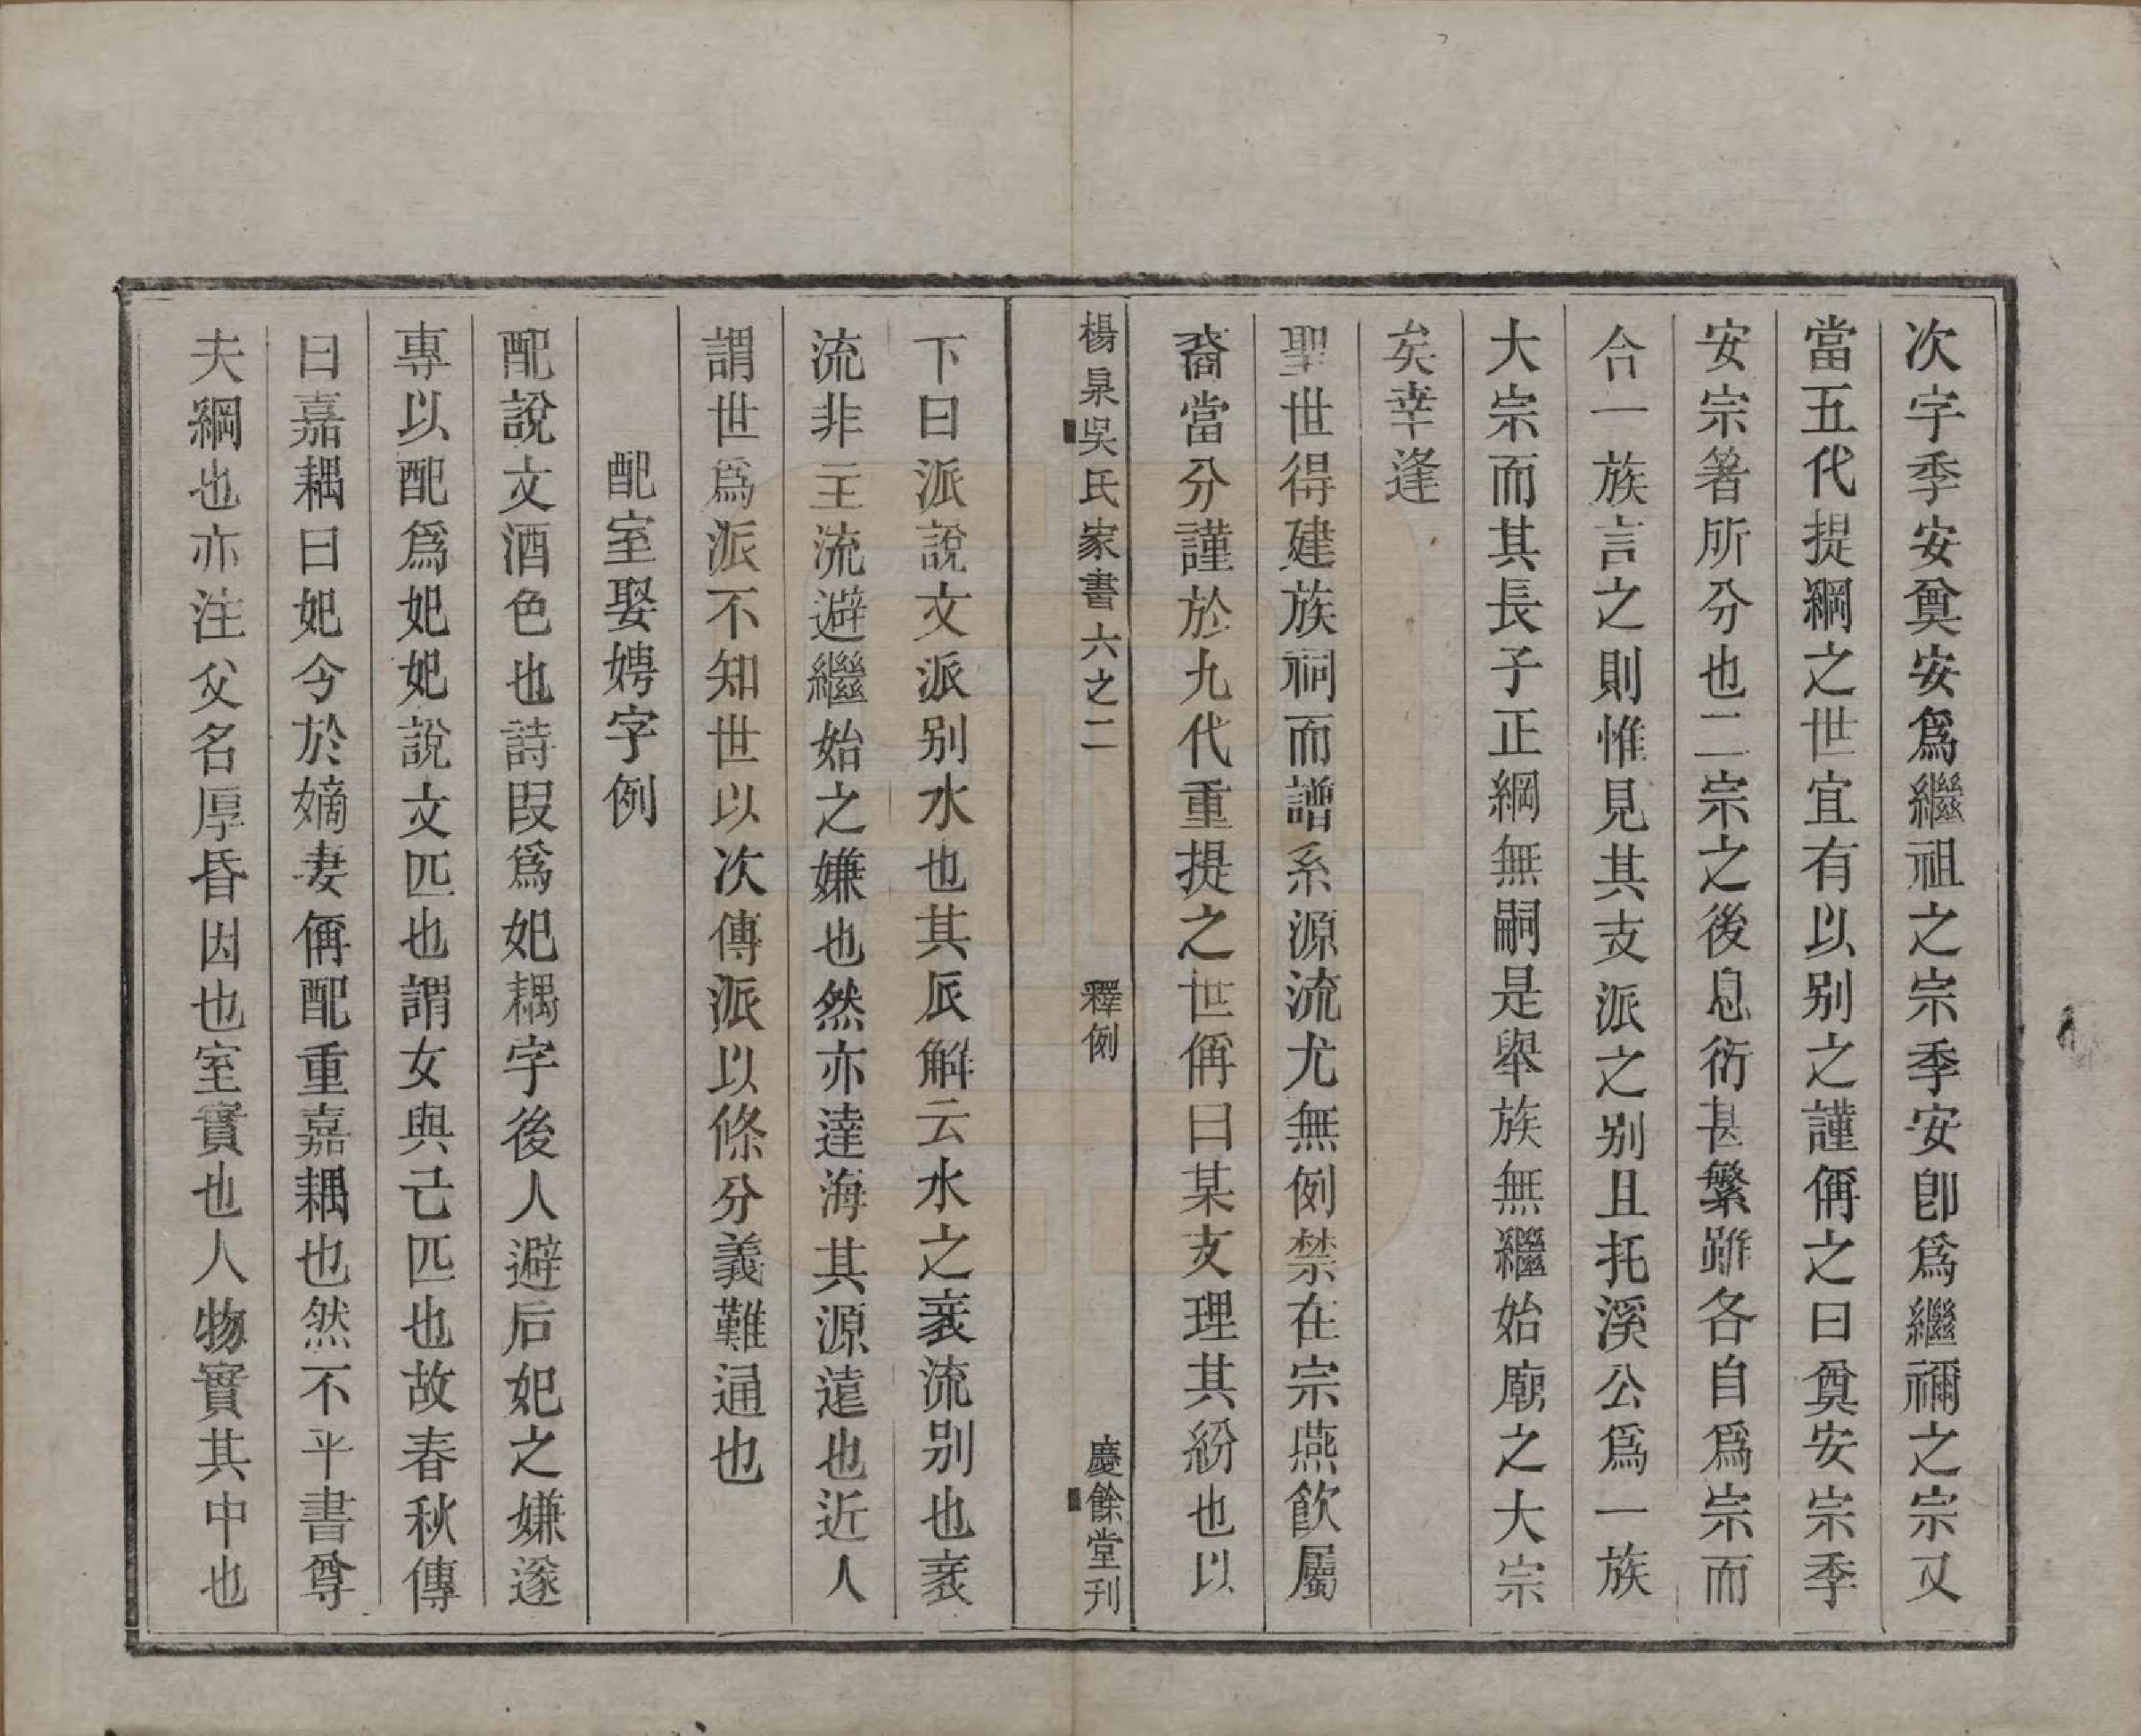 次字季安奠安爲繼祖之宗季安卽爲繼禰之宗又
當五代提綱之世宜有以别之謹偁之曰奠安宗季
安宗箸所分也二宗之後息衍甚繁雖各自爲宗而
合一族言之則惟見其支派之别且托溪公爲一族
大宗而其長子正綱無嗣是舉族無繼始廟之大宗
矣幸逢
聖世得建族祠而譜系源流尤無例禁在宗燕飮屬
裔當分謹於九代重提之世偁曰某支理其紛也以
楊泉吳氏家書六之二
釋例
慶餘堂刊
下曰派說文派别水也其𠂢解云水之衺流别也衺
流非主流避繼始之嫌也然亦達海其源遠也近人
謂世爲派不知世以次傳派以條分義難通也
配室娶娉字例
配說文酒色也詩叚爲妃耦字後人避后妃之嫌遂
專以配爲妃妃說文匹也謂女與己匹也故春秋傳
曰嘉耦曰妃今於嫡妻偁配重嘉耦也然不平書尊
夫綱也亦注父名厚昏因也室實也人物實其中也